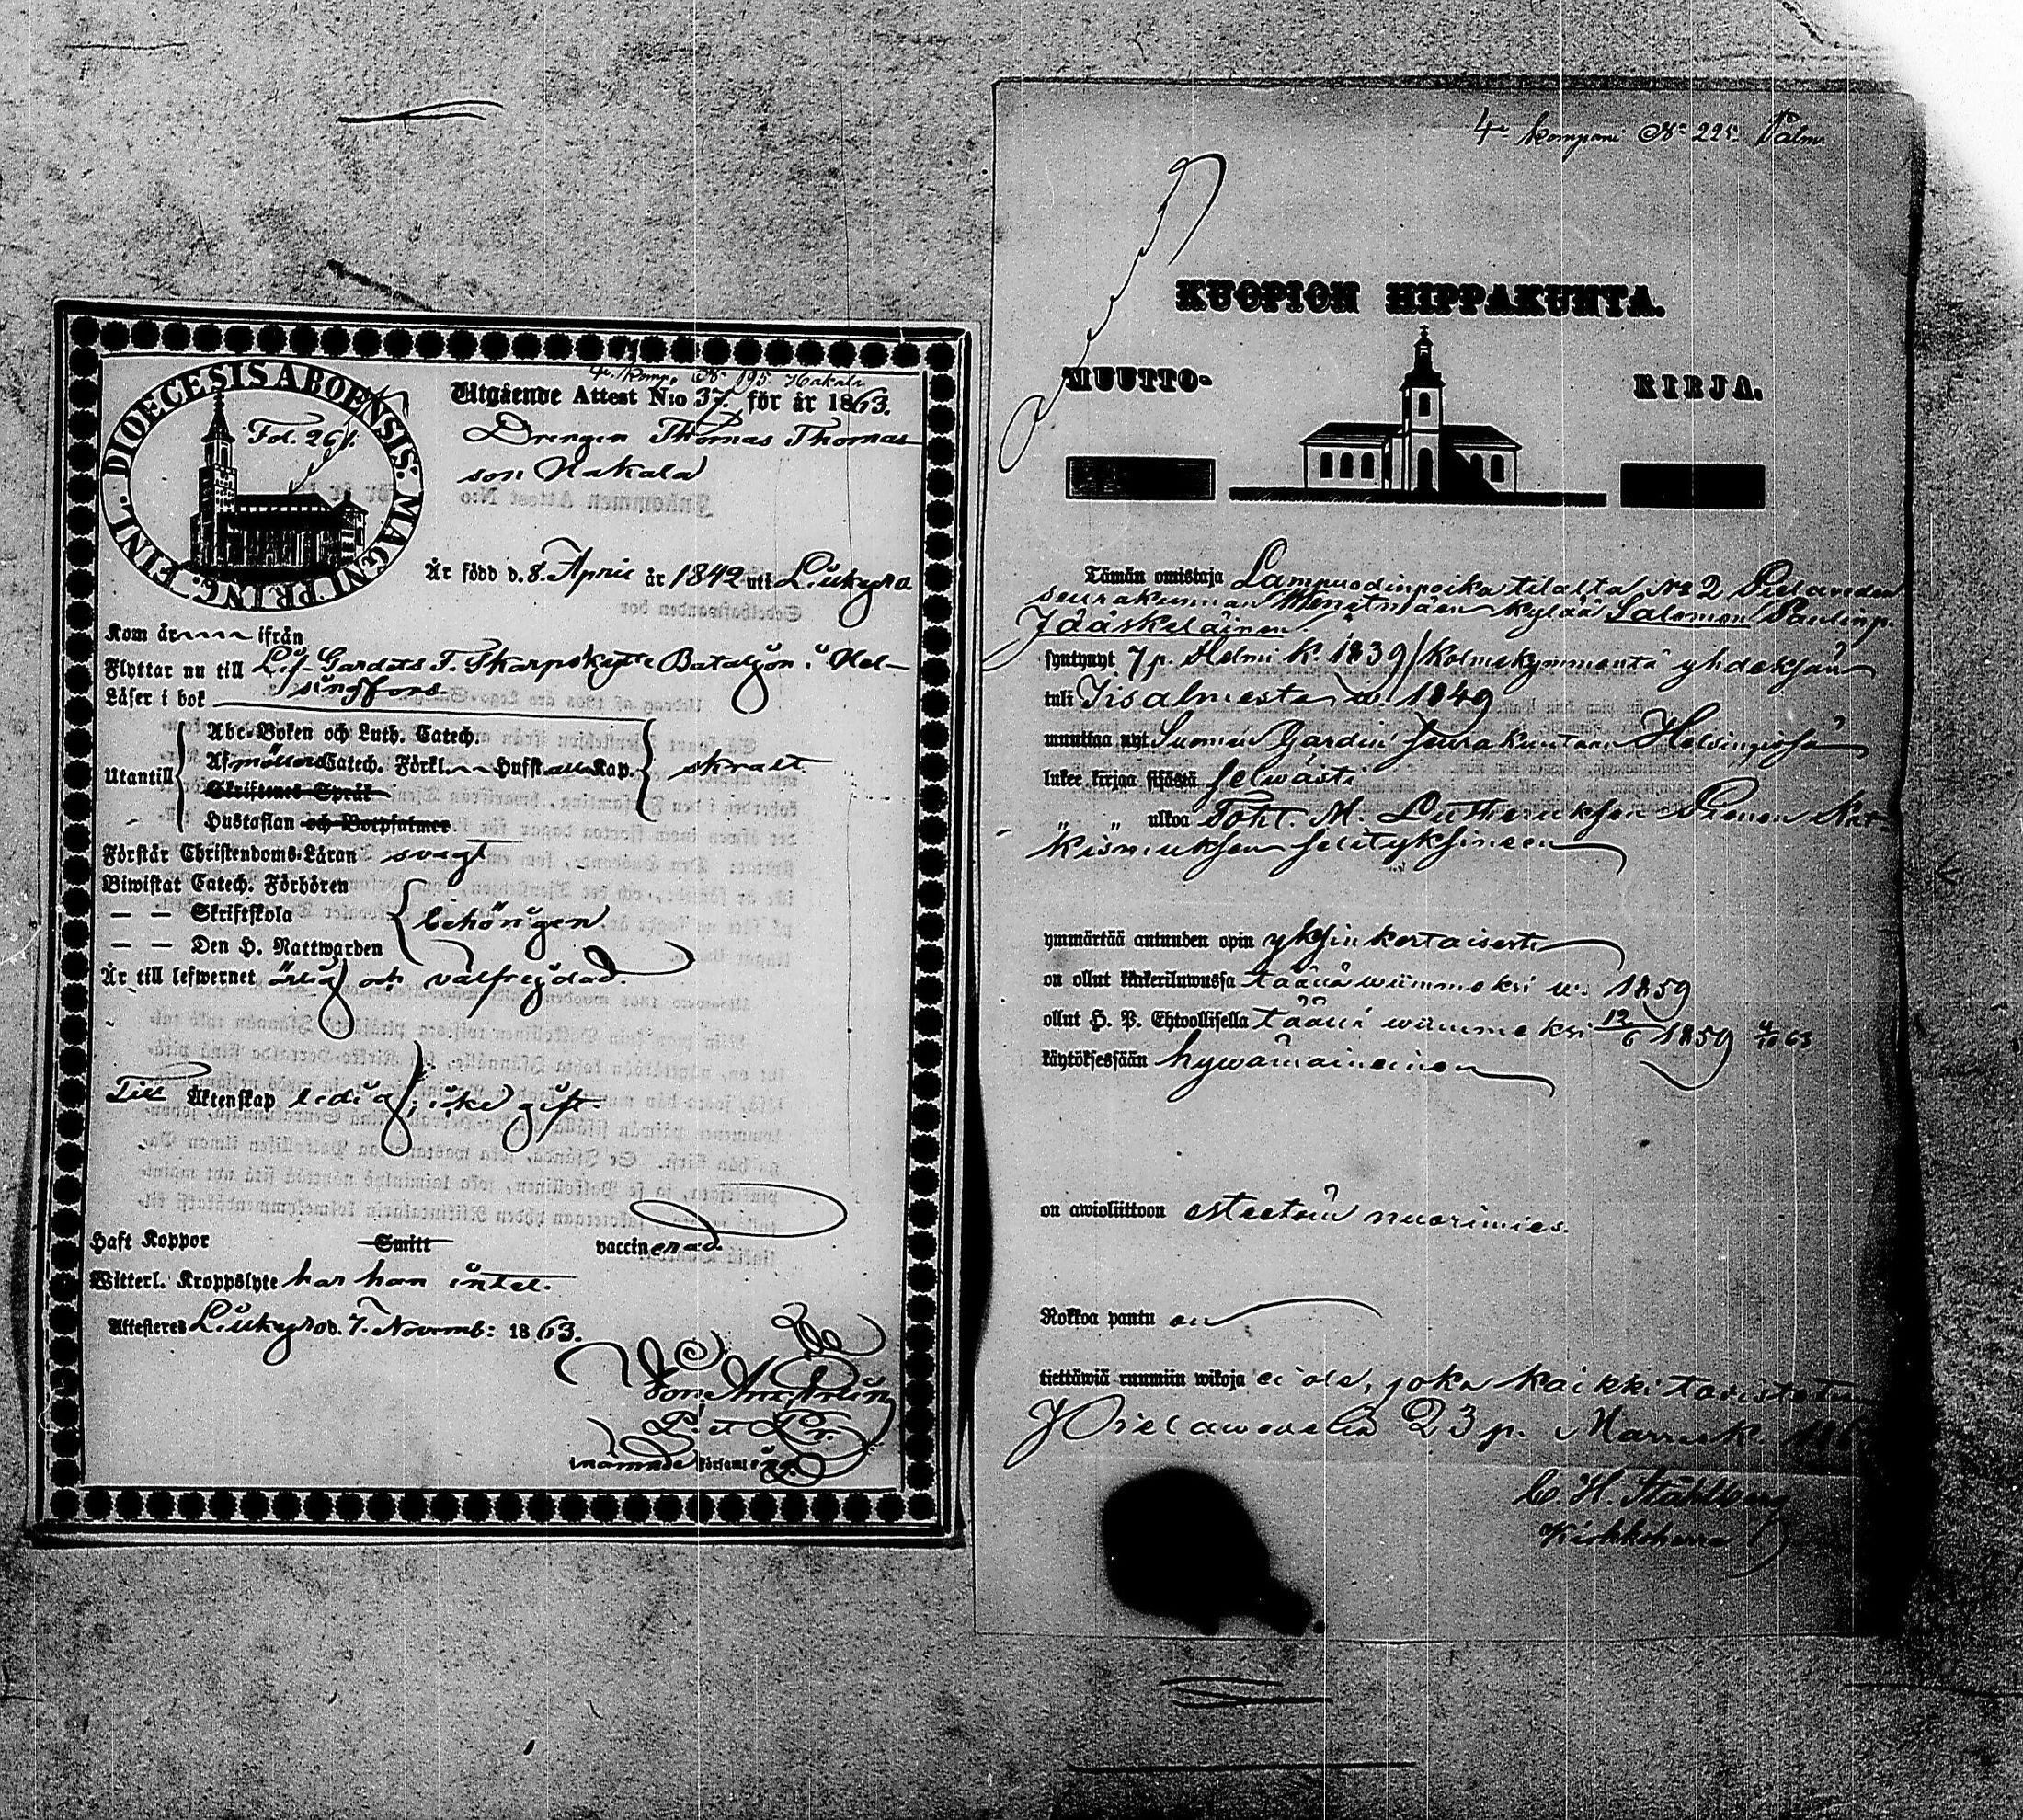 DIOECESIS ABOENSIS. MAGNI PRINC. FINL.
Fol. 261.
4e Komp. No 195. Hakala
Utgående Attest N:o 37 för år 1863.
Drengen Thomas Thomas
son Hakala
Är född d. 8. April år 1842 uti Liukyro
Kom år ifrån
Flyttar nu till Lif-Gardets F. Skarpskytte Bataljon i Hel-
singfors
Läser i bok
Utantill
Abc-Boken och Luth. Catech.
Af möllers Catech. Förkl. Hufst. alla Kap.
skralt
Skriftenes Språk
Hustaflan och Botpsalmer
Förstår Christendoms-Läran svagt
Biwistat Catech. Förhören
— — Skriftskola
behörigen
— — Den H. Nattwarden
Är till lefwernet ärlig och välfrejdad.
Till Äktenskap ledig; icke gift.
Haft Koppor Smitt vaccinerad.
Witterl. Kroppslyte har han intet.
Attesteras Liukyro d. 7. Novemb: 1863.
P. et Pr.
inamnde församling.
4e Kompani No 225 Palm
KUOPION HIPPAKUNTA.
MUUTTO- KIRJA.
Tämän omistaja Lampuodinpoika tilalta No 2 Pielaveden
seurakunnan kylää Salomon Paulinp.
Jääskeläinen
syntynyt 7 p. Helmi K. 1839/kolmekymmentä yhdeksän
tuli Iisalmesta w. 1849
muuttaa nyt Suomen Gardin seurakuntaan Helsingissä
lukee kirjaa sisästä selwästi
" " ulkoa Toht. M. Lutheruksen Pienen Kat-
kismuksen selityksineen
ymmärtää autuuden opin yksinkertaisesti
on ollut kinkeriluwussa täällä wiimmeksi w. 1859
ollut H. P. Ehtoollisella täällä wiimmeksi 12/6 1859
käytöksessään hywämaineinen
on awioliittoon esteetöin nuorimies.
Rokkoa pantu on
tiettäwiä ruumiin wikoja ei ole, joka kaikki todistetaan
Pielawedella 23 p. Marrask. 186
C. H. Ståhlberg
Kirkkoherra